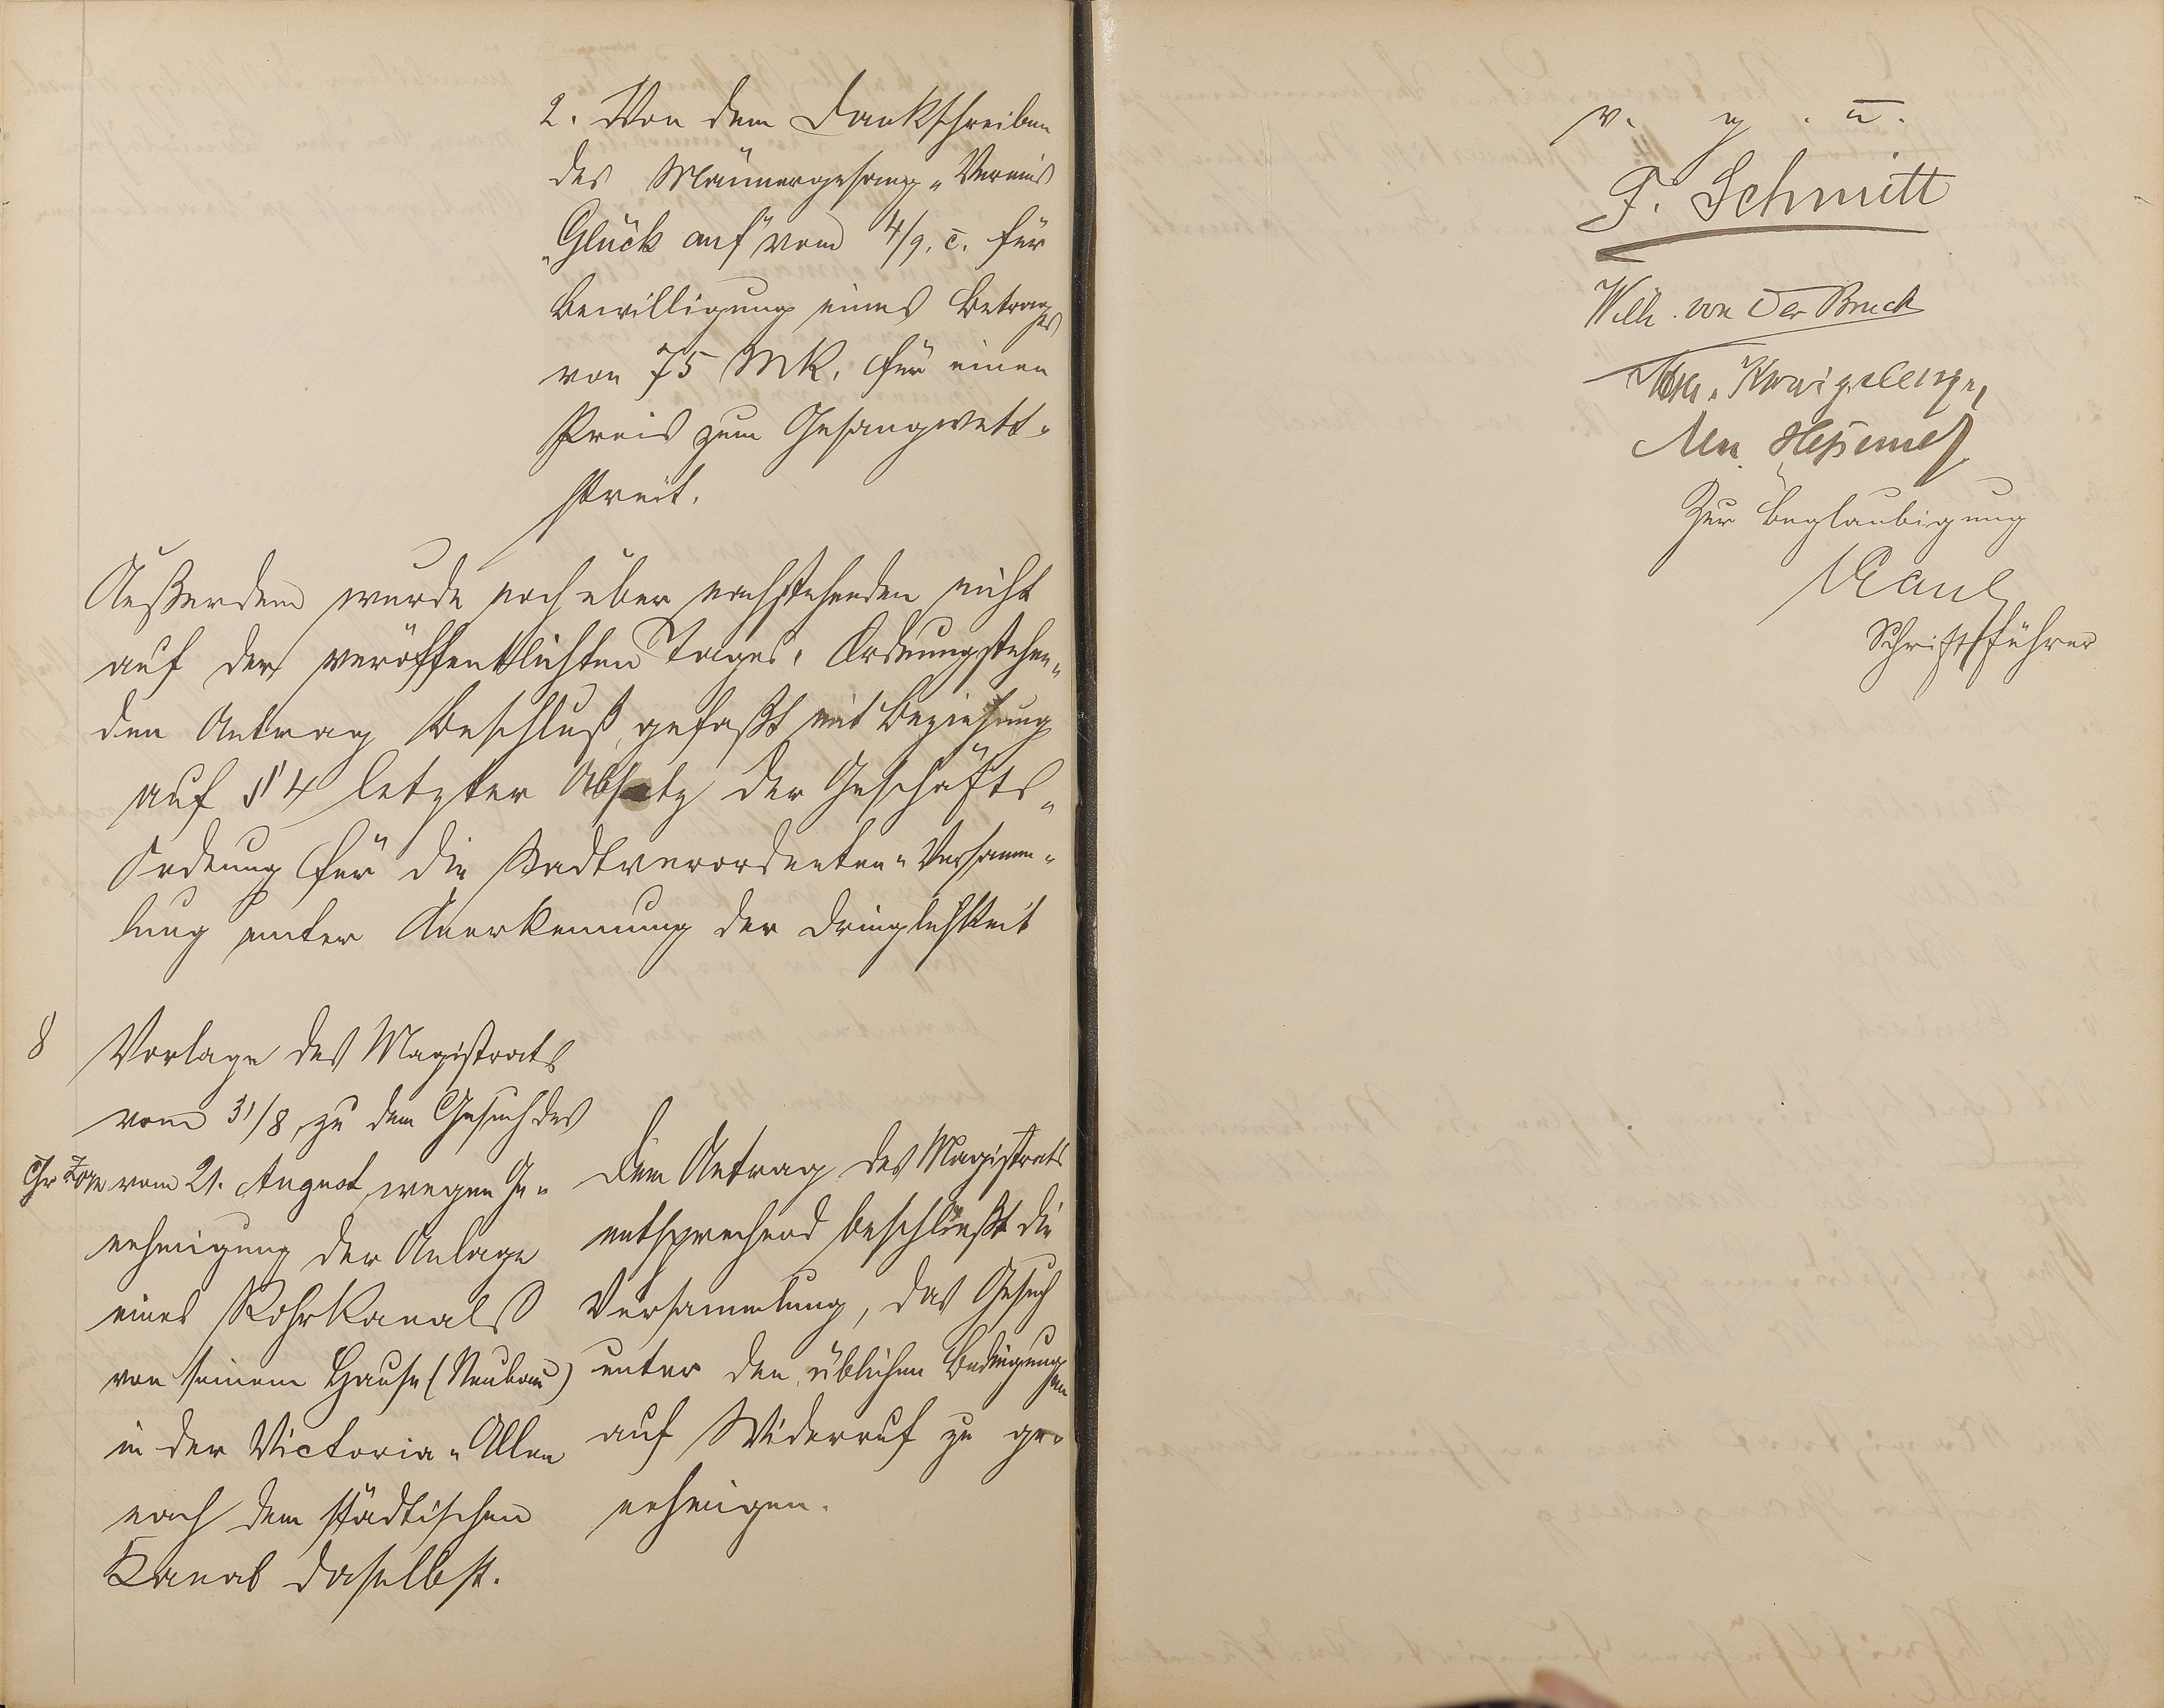 2. Von dem Dankschreiben
des Männergesang-Vereins
„Glück auf“ vom 4/9. c. für
Bewilligung eines Betrages
von 75 Mk. für einen
Preis zum Gesangwett-
streit.
Außerdem wurde noch über nachstehenden nicht
auf der veröffentlichten Tages-Ordnung stehen-
den Antrag Beschluß gefaßt mit Beziehung
auf § 4 letzter Absatz der Geschäfts-
Ordnung für die Stadtverordneten-Versamm-
lung unter Anerkennung der Dringlichkeit
8 Vorlage des Magistrats
vom 31/8, zu dem Gesuch des
vom 21. August, wegen Ge-
nehmigung der Anlage
eines Rohrkanals
von seinem Hause (Neubau)
in der Victoria-Allee
nach dem städtischen
Kanal daselbst.
Dem Antrag des Magistrats
entsprechend beschließt die
Versammlung, das Gesuch
unter den üblichen Bedingungen
auf Widerruf zu ge-
nehmigen.
v. g. u.
F. Schmitt
Wilh. von der Bruck
Zur Beglaubigung
Schriftführer